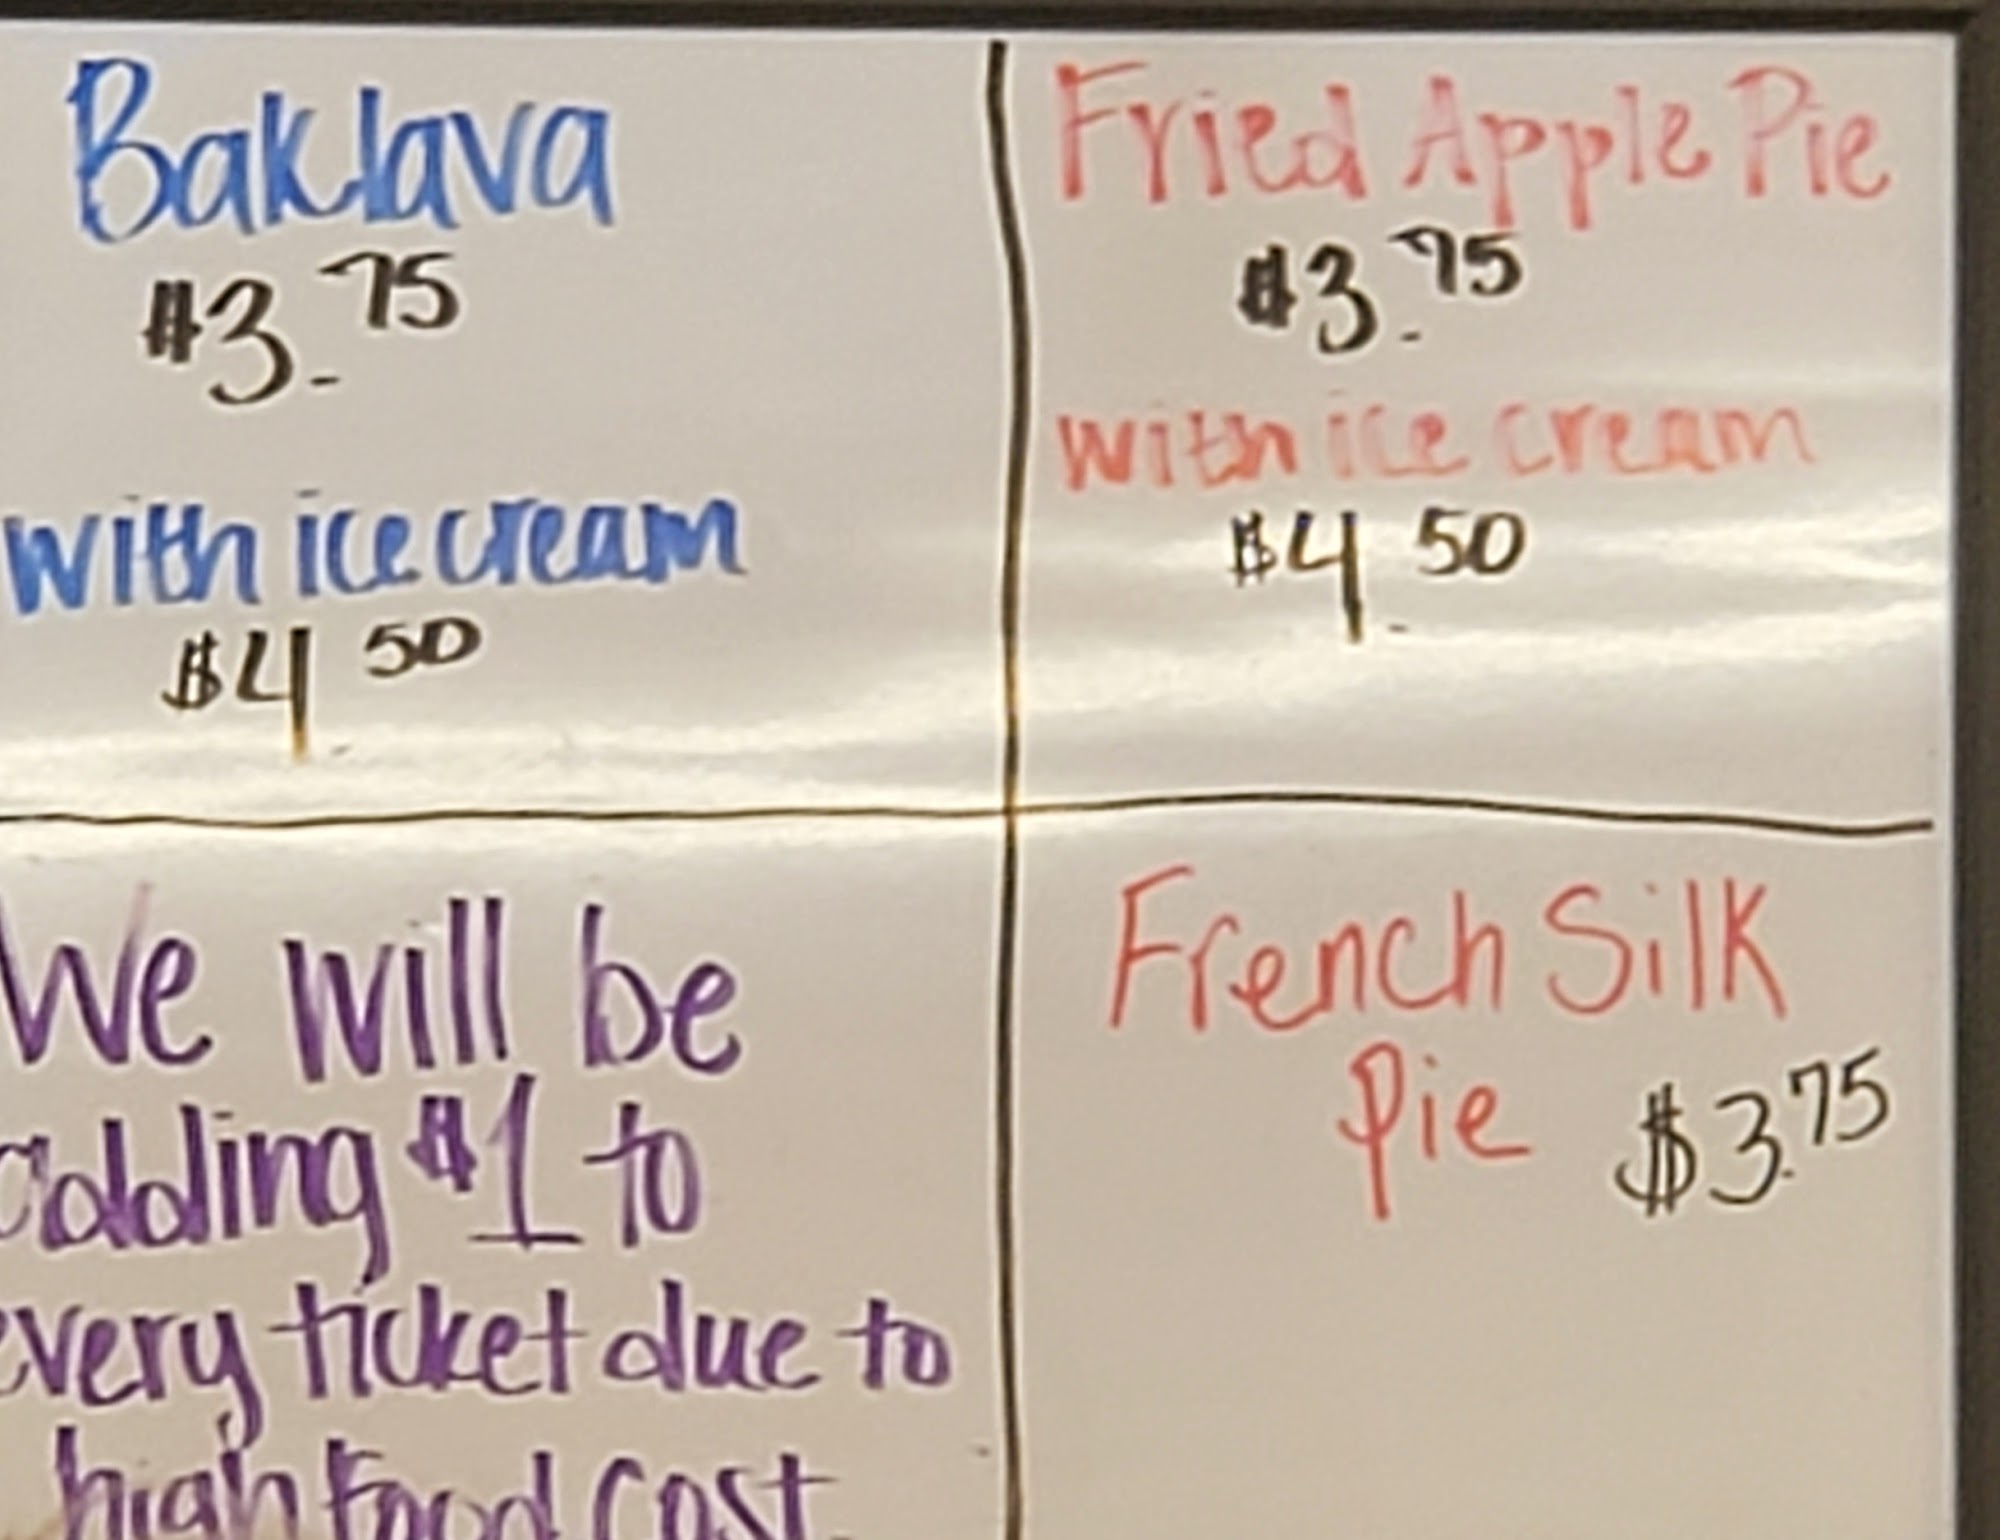 Baklava
$3.75
with ice cream
$4.50
Fried Apple Pie
$3.75
with ice cream
$4.50
We will be
adding $1 to
every ticket due to
high food cost.
French Silk
Pie $3.75